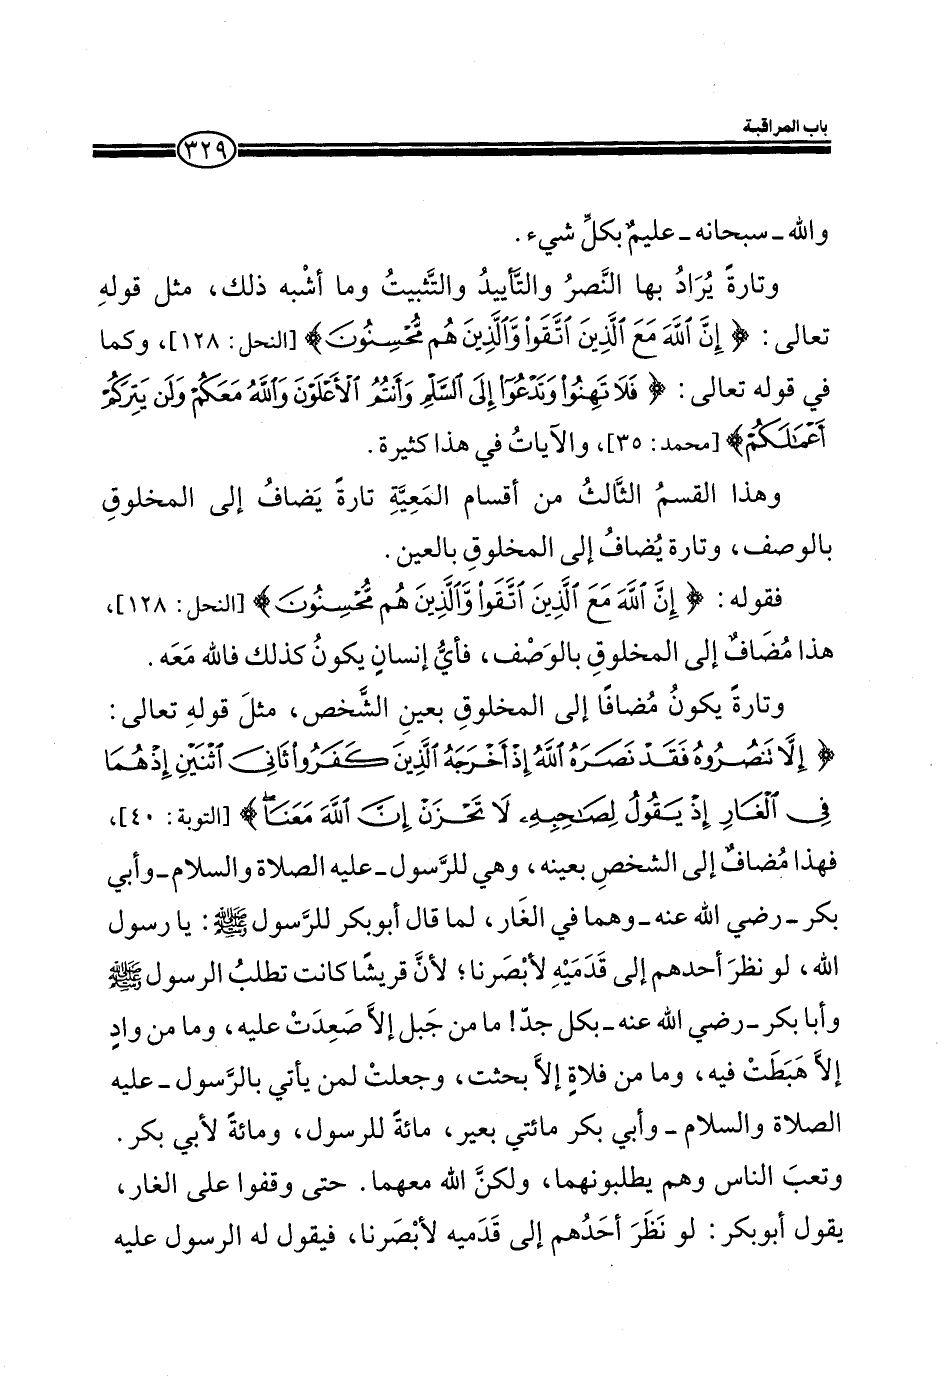 باب المراقبة
٣٢٩
والله ـ سبحانه ـ عليمٌ بكلِّ شيء .
وتارةً يُرَادُ بها النَّصرُ والتَّأييدُ والتَّثبيتُ وما أشْبه ذلك، مثل قولهِ
تعالى : ﴿ إِنَّ ٱللَّهَ مَعَ ٱلَّذِينَ ٱتَّقَواْ وَّٱلَّذِينَ هُم مُّحْسِنُونَ ﴾ [النحل: ١٢٨]، وكما
في قوله تعالى : ﴿ فَلَا تَهِنُواْ وَتَدْعُوٓاْ إِلَى ٱلسَّلْمِ وَأَنتُمُ ٱلْأَعْلَوْنَ وَٱللَّهُ مَعَكُمْ وَلَن يَتِرَكُمْ
أَعْمَٰلَكُمْ ﴾ [محمد: ٣٥]، والآياتُ في هذا كثيرة .
وهذا القسمُ الثَّالثُ من أقسام المَعِيَّةِ تارةً يَضافُ إلى المخلوقِ
بالوصف، وتارة يُضافُ إلى المخلوقِ بالعين .
فقوله : ﴿ إِنَّ ٱللَّهَ مَعَ ٱلَّذِينَ ٱتَّقَواْ وَّٱلَّذِينَ هُم مُّحْسِنُونَ ﴾ [النحل: ١٢٨]،
هذا مُضَافٌ إلى المخلوقِ بالوَصْف، فأيُّ إنسانٍ يكونُ كذلك فالله مَعَه .
وتارةً يكونُ مُضافًا إلى المخلوقِ بعينِ الشَّخص، مثلَ قولهِ تعالى :
﴿ إِلَّا تَنصُرُوهُ فَقَدْ نَصَرَهُ ٱللَّهُ إِذْ أَخْرَجَهُ ٱلَّذِينَ كَفَرُواْ ثَانِيَ ٱثْنَيْنِ إِذْ هُمَا
فِي ٱلْغَارِ إِذْ يَقُولُ لِصَٰحِبِهِۦ لَا تَحْزَنْ إِنَّ ٱللَّهَ مَعَنَا ﴾ [التوبة: ٤٠]،
فهذا مُضافٌ إلى الشخصِ بعينه، وهي للرَّسول ـ عليه الصلاة والسلام ـ وأبي
بكر ـ رضي الله عنه ـ وهما في الغَار، لما قال أبو بكر للرَّسول ﷺ : يا رسول
الله، لو نظرَ أحدهم إلى قَدَمَيْهِ لأبْصَرنا؛ لأنَّ قريشًا كانت تطلبُ الرسول ﷺ
وأبا بكر ـ رضي الله عنه ـ بكل جدّ! ما من جَبل إلاَّ صَعِدَتْ عليه، وما من وادٍ
إلاَّ هَبَطَتْ فيه، وما من فلاةٍ إلاَّ بحثت، وجعلتْ لمن يأتي بالرَّسول ـ عليه
الصلاة والسلام ـ وأبي بكر مائتي بعير، مائةً للرسول، ومائةً لأبي بكر .
وتعبَ الناس وهم يطلبونهما، ولكنَّ الله معهما . حتى وقفوا على الغار،
يقول أبو بكر : لو نَظَرَ أحَدُهم إلى قَدَميه لأبْصَرنا، فيقول له الرسول عليه